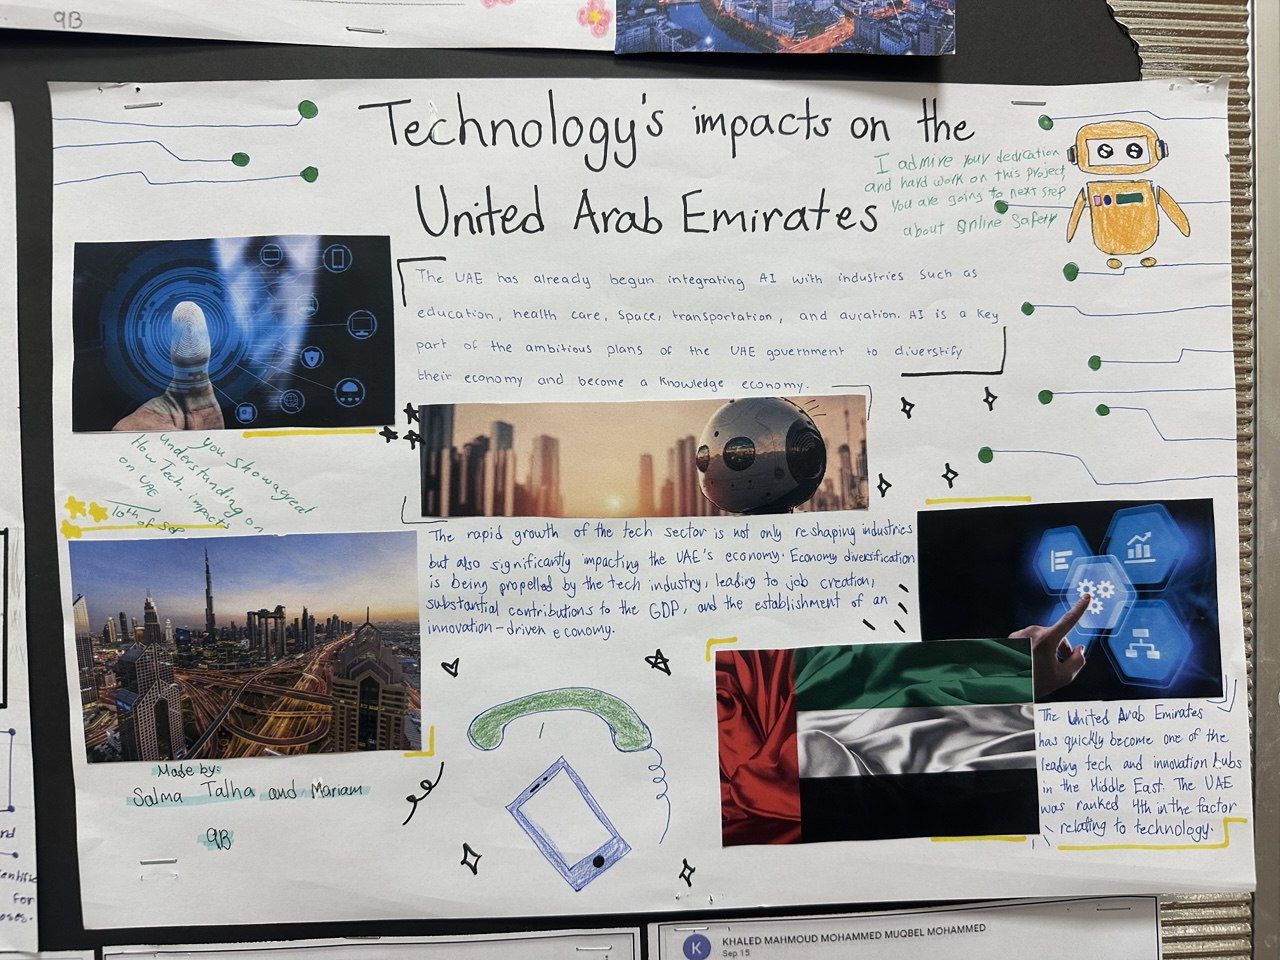 9B
Technology's impacts on the
United Arab Emirates
I admire your dedication
and hard work on this project,
you are going to next step
about Online Safety
The UAE has already begun integrating AI with industries such as
education, health care, space, transportation, and aviation. AI is a key
part of the ambitious plans of the UAE government to diverstify
their economy and become a knowledge economy.
you show a great
understanding on
How Tech. impacts
on UAE
10th of Sep
The rapid growth of the tech sector is not only reshaping industries
but also significantly impacting the UAE's economy. Economy diversification
is being propelled by the tech industry, leading to job creation,
substantial contributions to the GDP, and the establishment of an
innovation-driven economy.
The United Arab Emirates
has quickly become one of the
leading tech and innovation hubs
in the Middle East. The UAE
was ranked 4th in the factor
relating to technology.
Made by:
Salma Talha and Mariam
9B
for
K
KHALED MAHMOUD MOHAMMED MUQBEL MOHAMMED
Sep 15